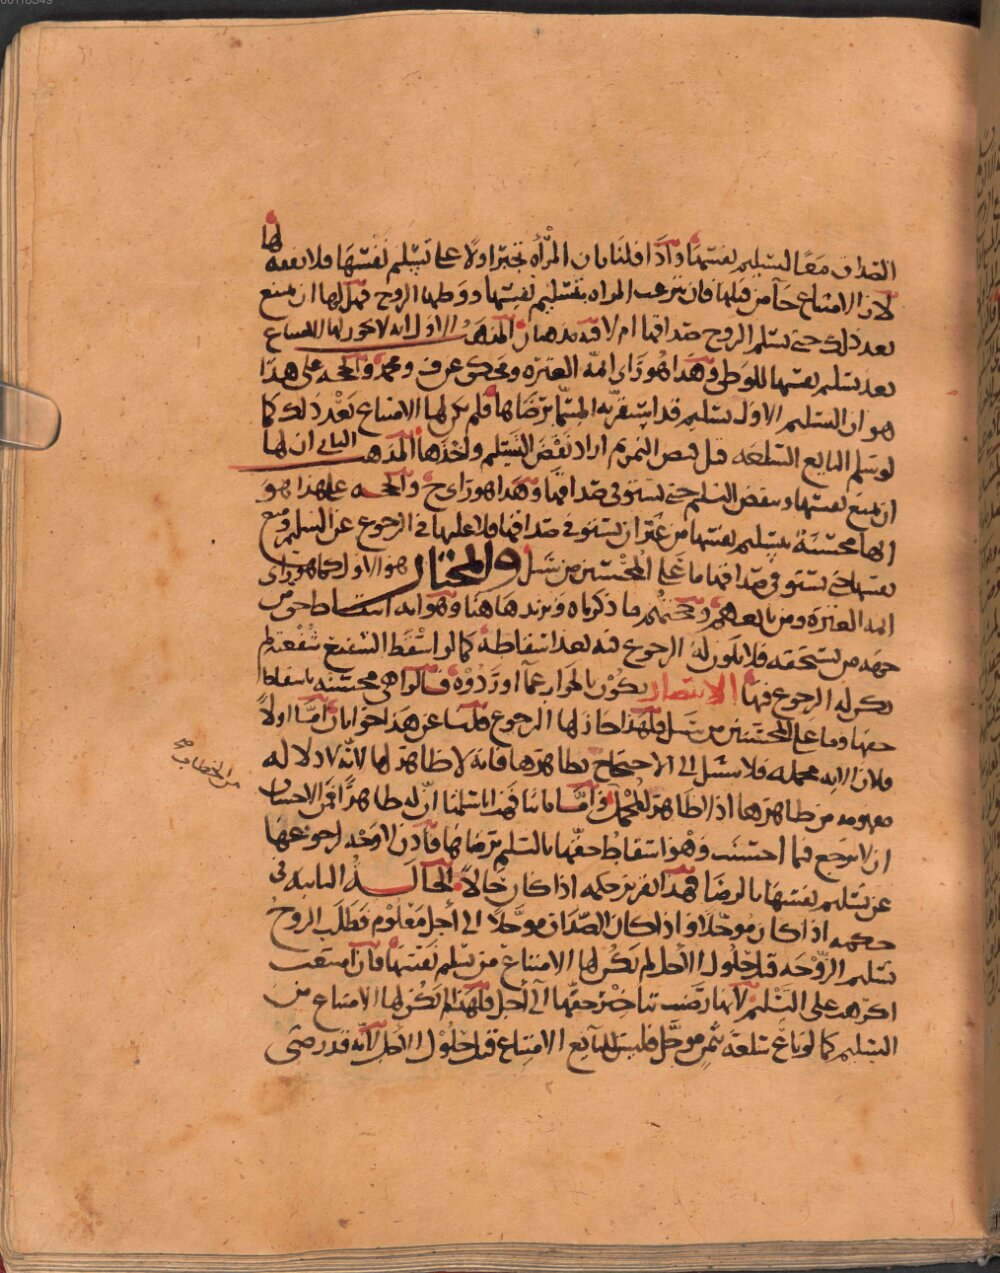 الصداق معًا لتسليم نفسها واذا قلنا بان المرأة تجبر اولًا على تسليم نفسها فلا نفقة لها
لان الامتناع جآ من قبلها فان تبرعت المراه بتسليم نفسها ووطيها الزوج فهل لها ان تمتنع
بعد ذلك حتى تسلم الزوج صداقها ام لا فيه مذهبان المذهب الاول انه لا يجوز لها الامتناع
بعد تسليم نفسها للوطي وهذا هو راي ائمة العترة ومحكي عن ف ومحمد والحجة على هذا
هو ان التسليم الاول تسليم قد استقر به المسمّا برضاها فلم يكن لها الامتناع بعد ذلك كما
لو سلم البايع السلعه قبل قبض الثمن ثم اراد نقض التسليم واخذها المذهب الثاني ان لها
ان تمنع نفسها وتنقض التسليم حتى تستوفي صداقها وهذا هو راي ح والحجه على هذا هو
انها محسنة بتسليم نفسها من غير ان تستوفي صداقها فلا عليها في الرجوع عن التسليم ومنع
نفسها حتى تستوفي صداقها ما على المحسنين من سبيل والمختار هو الاول كما هو راي
ائمة العترة ومن تابعهم وحجتهم ما ذكرناه ونزيد هاهنا وهو انه اسقاط حق من
جهه من يستحقه فلا يكون له الرجوع فيه بعد اسقاطه كما لو اسقط الشفيع شفعته لم
يكن له الرجوع فيها الانتصار يكون بالجواب عما اوردوه قالوا هي محسنة باسقاط
حقها وما على المحسنين من سبيل فلهذا جاز لها الرجوع قلنا عن هذا جوابان امّا اولًا
فلان الايه مجمله فلا سبيل الى الاحتجاج بظاهرها فانه لا ظاهر لها لانه لا دلاله
مفهومه من ظاهرها اذ لا ظاهر للمجمل واما ثانيا فهذا انا سلمنا انّ له ظاهرًا فمن الاحسان
من الخطاب صح
ان لا يرجع فيما احسنت وهو اسقاط حقها بالتسليم برضاها فاذن لا وجه لرجوعها
عن تسليم نفسها بالرضا فهذا تقرير حكمه اذا كان حالاً الحالة الثانيه في
حكمه اذا كان موجلًا واذا كان الصداق موجلًا الى أجل معلوم فطلب الزوج
تسليم الزوجه قبل حلول الأجل لم يكن لها الامتناع من تسليم نفسها فان امتنعت
اكرهت على التسليم لانها رضيت بتاخير حقها الى أجل فلهذا لم يكن لها الامتناع من
التسليم كما لو باع سلعة بثمن موجل فليس للبايع الامتناع قبل حلول الأجل لانه قد رضي